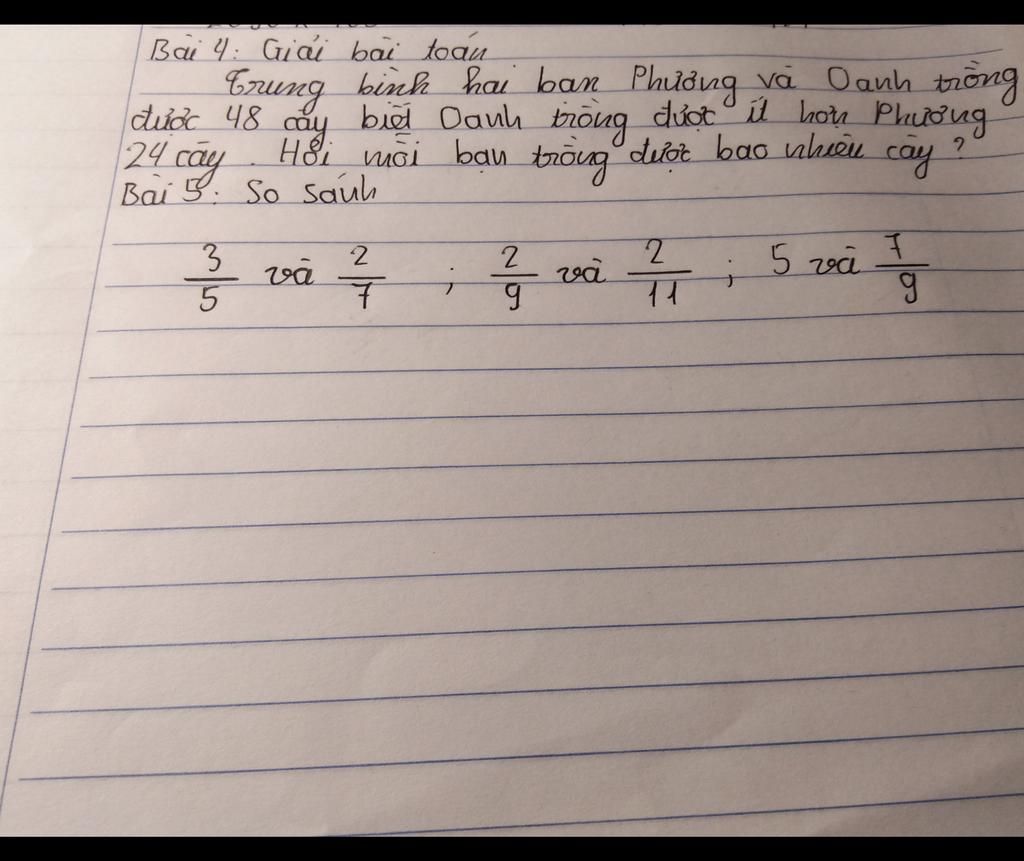 Bài 4: Giải bài toán
Trung bình hai bạn Phương và Oanh trồng
được 48 cây biết Oanh trồng được ít hơn Phương
24 cây. Hỏi mỗi bạn trồng được bao nhiêu cây?
Bài 5: So sánh
3/5 và 2/7 ; 2/9 và 2/11 ; 5 và 7/9